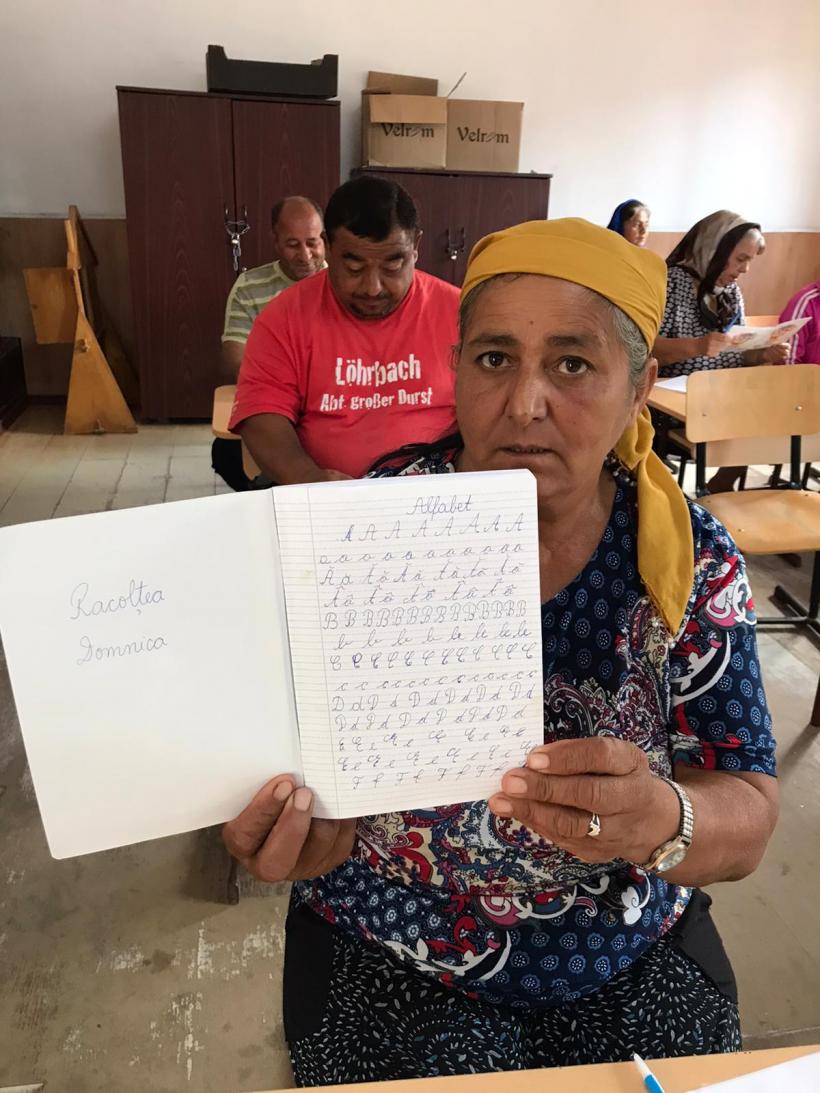 Velrom
Velrom
Löhrbach
Abt. großer Durst
Racolțea
Domnica
Alfabet
A A A A A A A A
a a a a a a a a a a a
Ă ă Ă ă Ă ă Ă ă Ă ă Ă ă
Â â Â â Â â Â â Â â
B B B B B B B B B B B B
b b b b b b b b
C C C C C C C C C C C
c c c c c c c c c c c
D d D d D d D d D d D d
D d D d D d D d D d D d
F f F f F f F f